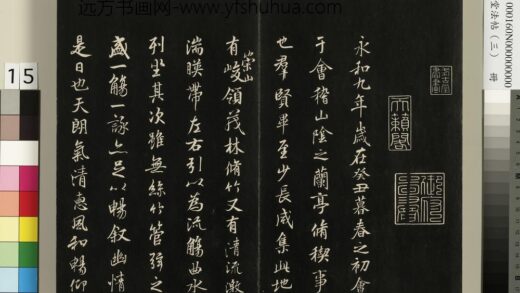 远方书画网-www.yfshuhua.com
堂法帖（三） 冊
天籟閣
永和九年歲在癸丑暮春之初會
于會稽山陰之蘭亭脩稧事
也羣賢畢至少長咸集此地
崇山
有峻領茂林脩竹又有清流激
湍暎帶左右引以為流觴曲水
列坐其次雖無絲竹管弦之
盛一觴一詠亦足以暢叙幽情
是日也天朗氣清惠風和暢仰
15